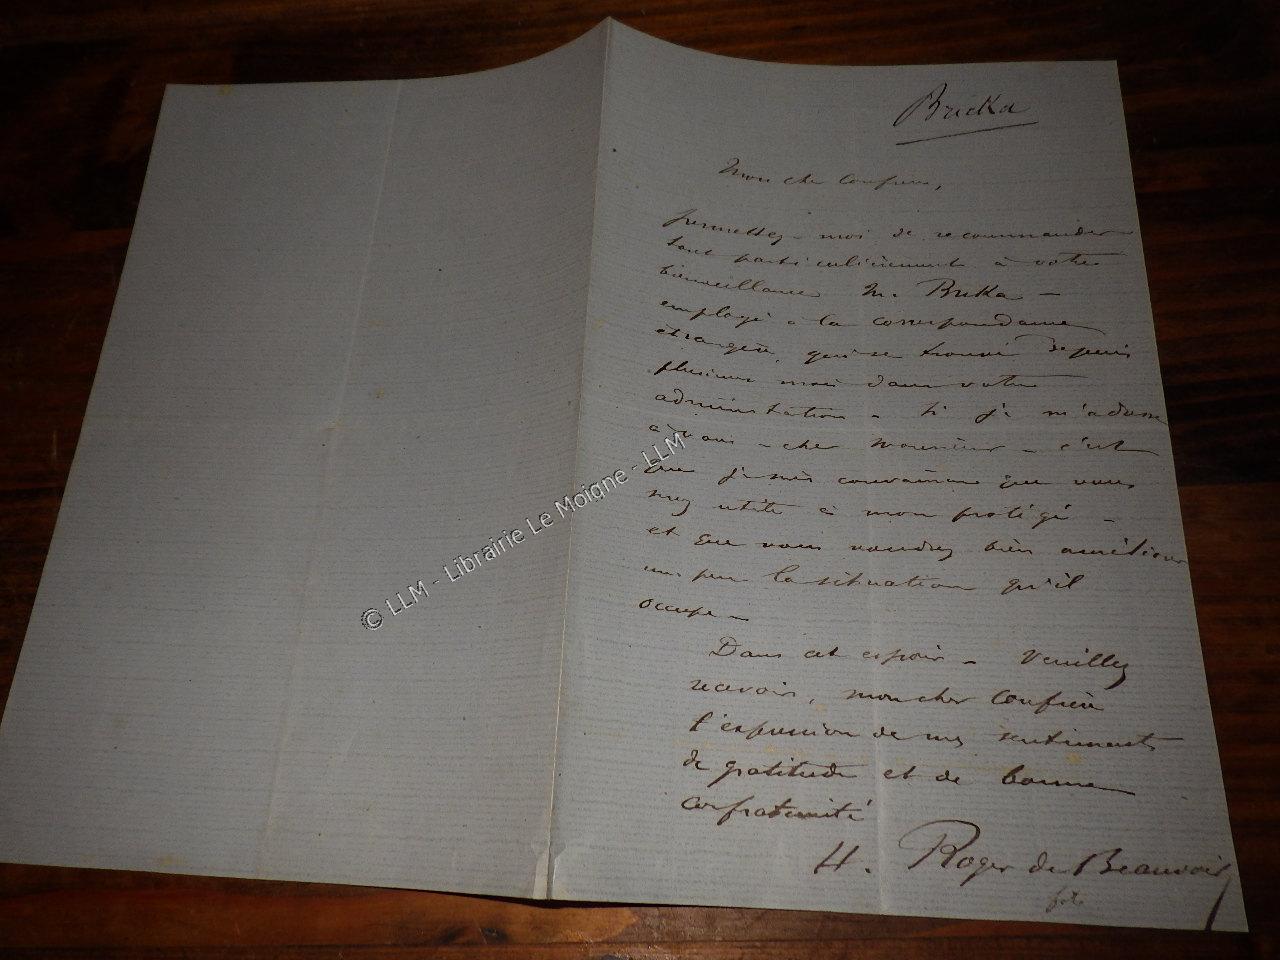 Bricka
Mon cher Confrère,
permettez-moi de recommander
tout particulièrement à votre
bienveillance M. Brika -
employé a la correspondance
étrangère, qui se trouve depuis
plusieurs mois dans votre
administration - Si je m'adresse
à vous - cher monsieur - c'est
que je suis convaincu que vous
utile à mon protégé -
et que vous voudrez bien améliorer
un peu la situation qu'il
occupe -
Dans cet espoir - Veuillez
recevoir, mon cher Confrère
l'expression de mes sentiments
de gratitude et de bonne
confraternité
H. Roger de Beauvoir
fils
© LLM - Librairie Le Moigne - LLM